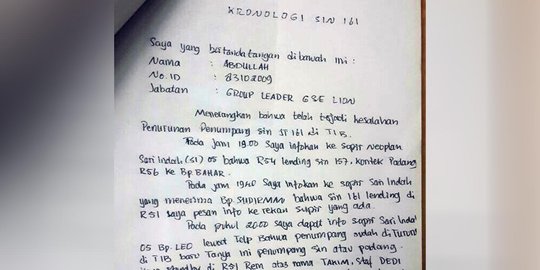 KRONOLOGI SIN 161
Saya yang bertandatangan dibawah ini :
Nama : ABDULLAH
No. ID : 83102009
Jabatan : GROUP LEADER GSE LION
Menerangkan bahwa telah terjadi kesalahan
Penurunan Penumpang SIN JT 161 di T1B.
Pada jam 19.00 Saya infokan ke sopir neoplan
Sari Indah (SI) 05 bahwa R54 lending SIN 157, kontek Padang
R56 ke BP. BAHAR.
Pada jam 1940 Saya infokan ke sopir Sari Indah
yang menerima BP. SUDIRMAN bahwa SIN 161 lending di
R51 saya pesan info ke rekan supir yang ada.
Pada pukul 2000 Saya dapat info sopir Sari Indah
05 BP. LEO lewat Telp Bahwa penumpang sudah di Turun
di T1B baru Tanya ini penumpang SIN atau padang.
di R51 Rem atas nama TAKIM, Staf DEDI